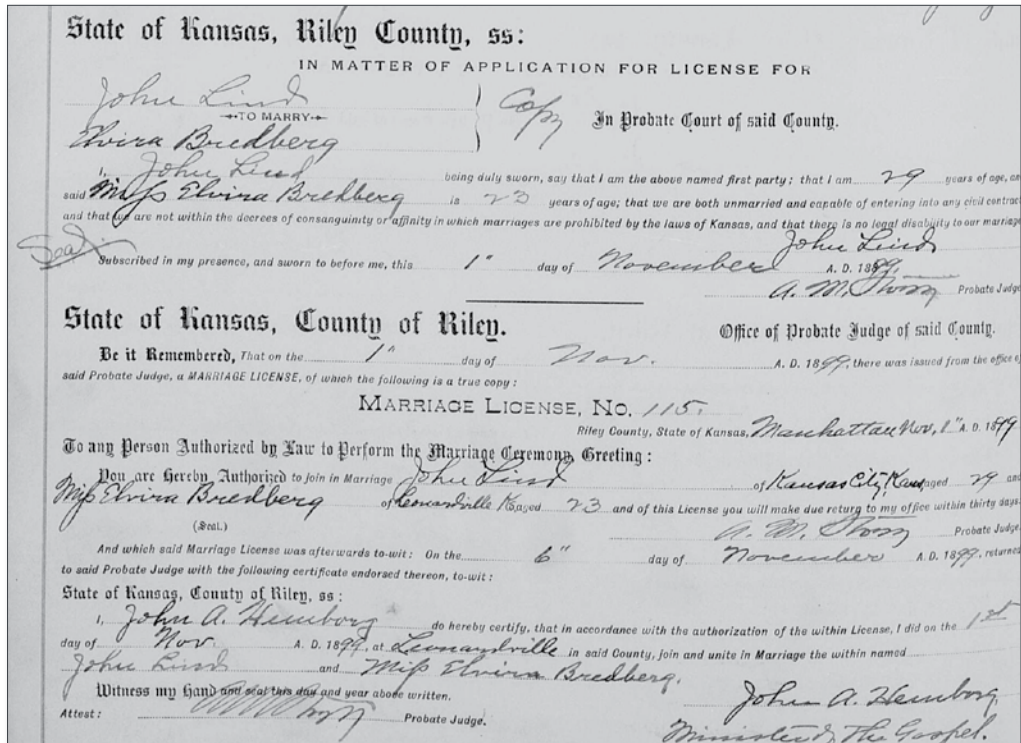 State of Kansas, Riley County, ss:
IN MATTER OF APPLICATION FOR LICENSE FOR
John Lind
TO MARRY
Elvira Bredberg
Copy
In Probate Court of said County.
I, John Lind being duly sworn, say that I am the above named first party; that I am 29 years of age, an
said Miss Elvira Bredberg is 23 years of age; that we are both unmarried and capable of entering into any civil contract
and that we are not within the decrees of consanguinity or affinity in which marriages are prohibited by the laws of Kansas, and that there is no legal disability to our marriage
John Lind
Seal.
Subscribed in my presence, and sworn to before me, this 1" day of November A. D. 1899.
A. M. Probate Judge
State of Kansas, County of Riley.
Office of Probate Judge of said County.
Be it Remembered, That on the 1" day of Nov. A. D. 1899, there was issued from the office o
said Probate Judge, a MARRIAGE LICENSE, of which the following is a true copy:
MARRIAGE LICENSE, NO. 115.
Riley County, State of Kansas, Manhattan Nov, 1" A. D. 1899
To any Person Authorized by Law to Perform the Marriage Ceremony, Greeting:
You are Hereby Authorized to join in Marriage John Lind of Kansas City, Kans aged 29 and
Miss Elvira Bredberg of Leonardville Ks aged 23 and of this License you will make due return to my office within thirty days.
(Seal.)
A. M. Probate Judge
And which said Marriage License was afterwards to-wit: On the 6" day of November A. D. 1899, returned
to said Probate Judge with the following certificate endorsed thereon, to-wit:
State of Kansas, County of Riley, ss:
I, John A. Hemborg do hereby certify, that in accordance with the authorization of the within License, I did on the 1st
day of Nov. A. D. 1899, at Leonardville in said County, join and unite in Marriage the within named
John Lind and Miss Elvira Bredberg.
Witness my Hand and seal this day and year above written.
John A. Hemborg,
Attest: Probate Judge.
Minister of The Gospel.